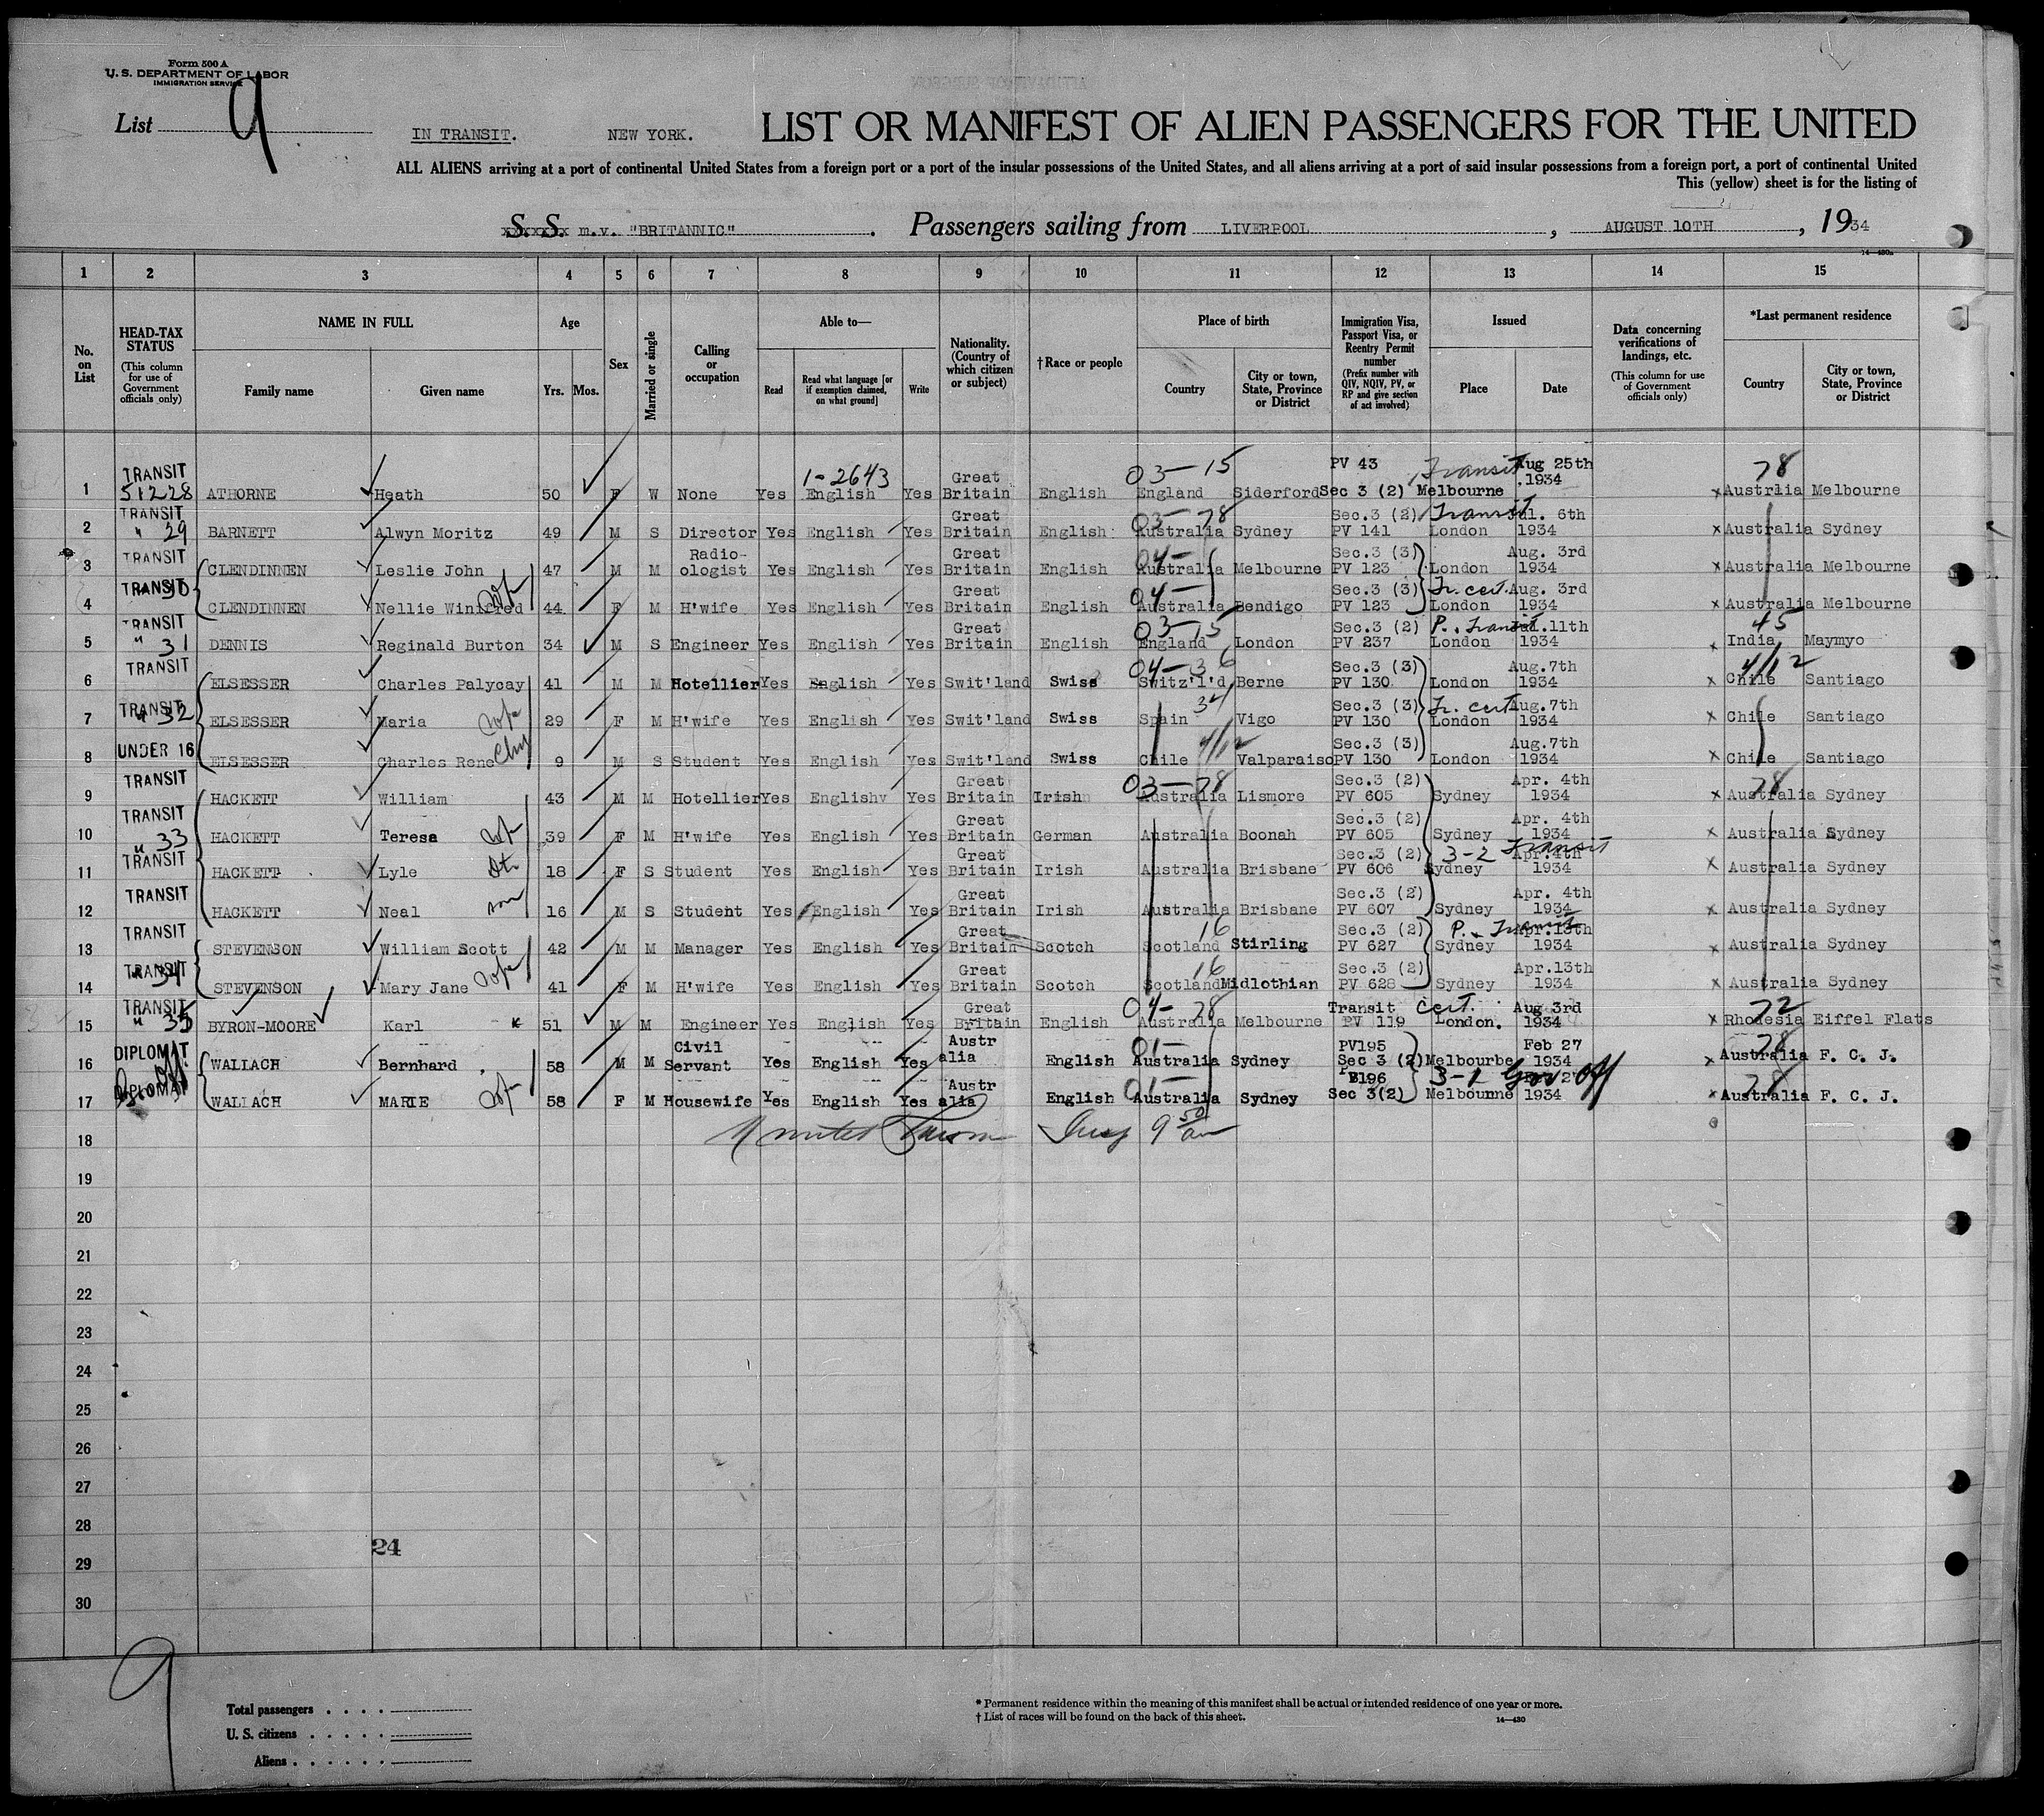 Form 500 A
U. S. DEPARTMENT OF LABOR
IMMIGRATION SERVICE
List 9
IN TRANSIT. NEW YORK. LIST OR MANIFEST OF ALIEN PASSENGERS FOR THE UNITED
ALL ALIENS arriving at a port of continental United States from a foreign port or a port of the insular possessions of the United States, and all aliens arriving at a port of said insular possessions from a foreign port, a port of continental United
This (yellow) sheet is for the listing of
S. S. m.v. "BRITANNIC" . Passengers sailing from LIVERPOOL , AUGUST 10TH , 1934
14—430a
1 2 3 4 5 6 7 8 9 10 11 12 13 14 15
No. on List
HEAD-TAX STATUS (This column for use of Government officials only)
NAME IN FULL Family name Given name
Age Yrs. Mos.
Sex
Married or single
Calling or occupation
Able to— Read Read what language [or if exemption claimed, on what ground] Write
Nationality. (Country of which citizen or subject)
†Race or people
Place of birth Country City or town, State, Province or District
Immigration Visa, Passport Visa, or Reentry Permit number (Prefix number with QIV, NQIV, PV, or RP and give section of act involved)
Issued Place Date
Data concerning verifications of landings, etc. (This column for use of Government officials only)
*Last permanent residence Country City or town, State, Province or District
TRANSIT 1-2643 Great 03-15 PV 43 Transit Aug 25th 78
1 51228 ATHORNE Heath 50 F W None Yes English Yes Britain English England Siderford Sec 3 (2) Melbourne .1934 x Austrlia Melbourne
TRANSIT Great 03-78 Sec.3 (2) Transit Jul. 6th
2 " 29 BARNETT Alwyn Moritz 49 M S Director Yes English Yes Britain English Australia Sydney PV 141 London 1934 x Australia Sydney
TRANSIT Radio- Great 04- Sec.3 (3) Aug. 3rd
3 CLENDINNEN Leslie John 47 M M ologist Yes English Yes Britain English Australia Melbourne PV 123 London 1934 x Australia Melbourne
TRANSIT 30 Great 04- Sec.3 (3) Tr. cert. Aug. 3rd
4 CLENDINNEN Nellie Winifred 44 F M H'wife Yes English Yes Britain English Australia Bendigo PV 123 London 1934 x Australia Melbourne
TRANSIT Great 03-15 Sec.3 (2) P. Transit 11th 45
5 " 31 DENNIS Reginald Burton 34 M S Engineer Yes English Yes Britain English England London PV 237 London 1934 x India Maymyo
TRANSIT 04-36 Sec.3 (3) Aug.7th 4/12
6 ELSESSER Charles Palycay 41 M M Hotellier Yes English Yes Swit'land Swiss Switz'l'd Berne PV 130 London 1934 x Chile Santiago
TRANSIT " 32 34 Sec.3 (3) Tr. cert Aug.7th
7 ELSESSER Maria 29 F M H'wife Yes English Yes Swit'land Swiss Spain Vigo PV 130 London 1934 x Chile Santiago
UNDER 16 4/12 Sec.3 (3) Aug.7th
8 ELSESSER Charles Rene 9 M S Student Yes English Yes Swit'land Swiss Chile Valparaiso PV 130 London 1934 x Chile Santiago
TRANSIT Great 03-78 Sec.3 (2) Apr. 4th 78
9 HACKETT William 43 M M Hotellier Yes Englishv Yes Britain Irish Australia Lismore PV 605 Sydney 1934 x Australia Sydney
TRANSIT Great Sec.3 (2) Apr. 4th
10 " 33 HACKETT Teresa 39 F M H'wife Yes English Yes Britain German Australia Boonah PV 605 Sydney 1934 x Australia Sydney
TRANSIT Great Sec.3 (2) 3-2 Transit Apr.4th
11 HACKETT Lyle 18 F S Student Yes English Yes Britain Irish Australia Brisbane PV 606 Sydney 1934 x Australia Sydney
TRANSIT Great Sec.3 (2) Apr. 4th
12 HACKETT Neal son 16 M S Student Yes English Yes Britain Irish Australia Brisbane PV 607 Sydney 1934 x Australia Sydney
TRANSIT Great 16 Sec.3 (2) P. Transit Apr.13th
13 STEVENSON William Scott 42 M M Manager Yes English Yes Britain Scotch Scotland Stirling PV 627 Sydney 1934 x Australia Sydney
TRANSIT " 34 Great 16 Sec.3 (2) Apr.13th
14 STEVENSON Mary Jane 41 F M H'wife Yes English Yes Britain Scotch Scotland Midlothian PV 628 Sydney 1934 x Australia Sydney
TRANSIT Great 04-78 Transit cert. Aug 3rd 72
15 " 35 BYRON-MOORE Karl 51 M M Engineer Yes English Yes Britain English Australia Melbourne PV 119 London. 1934 x Rhodesia Eiffel Flats
DIPLOMAT Civil Austr 01- PV195 Feb 27 78
16 WALLACH Bernhard 58 M M Servant Yes English Yes alia English Australia Sydney Sec 3 (2) Melbourbe 1934 x Australia F. C. J.
DIPLOMAT Austr 01- 3-1 Gov Off 78
17 WALLACH MARIE 58 F M Housewife Yes English Yes alia English Australia Sydney Sec 3(2) Melbourne 1934 x Australia F. C. J.
18
19
20
21
22
23
24
25
26
27
28
24
29
30
9
Total passengers . . . .
U. S. citizens . . . . .
Aliens . . . . . .
* Permanent residence within the meaning of this manifest shall be actual or intended residence of one year or more.
† List of races will be found on the back of this sheet. 14—430